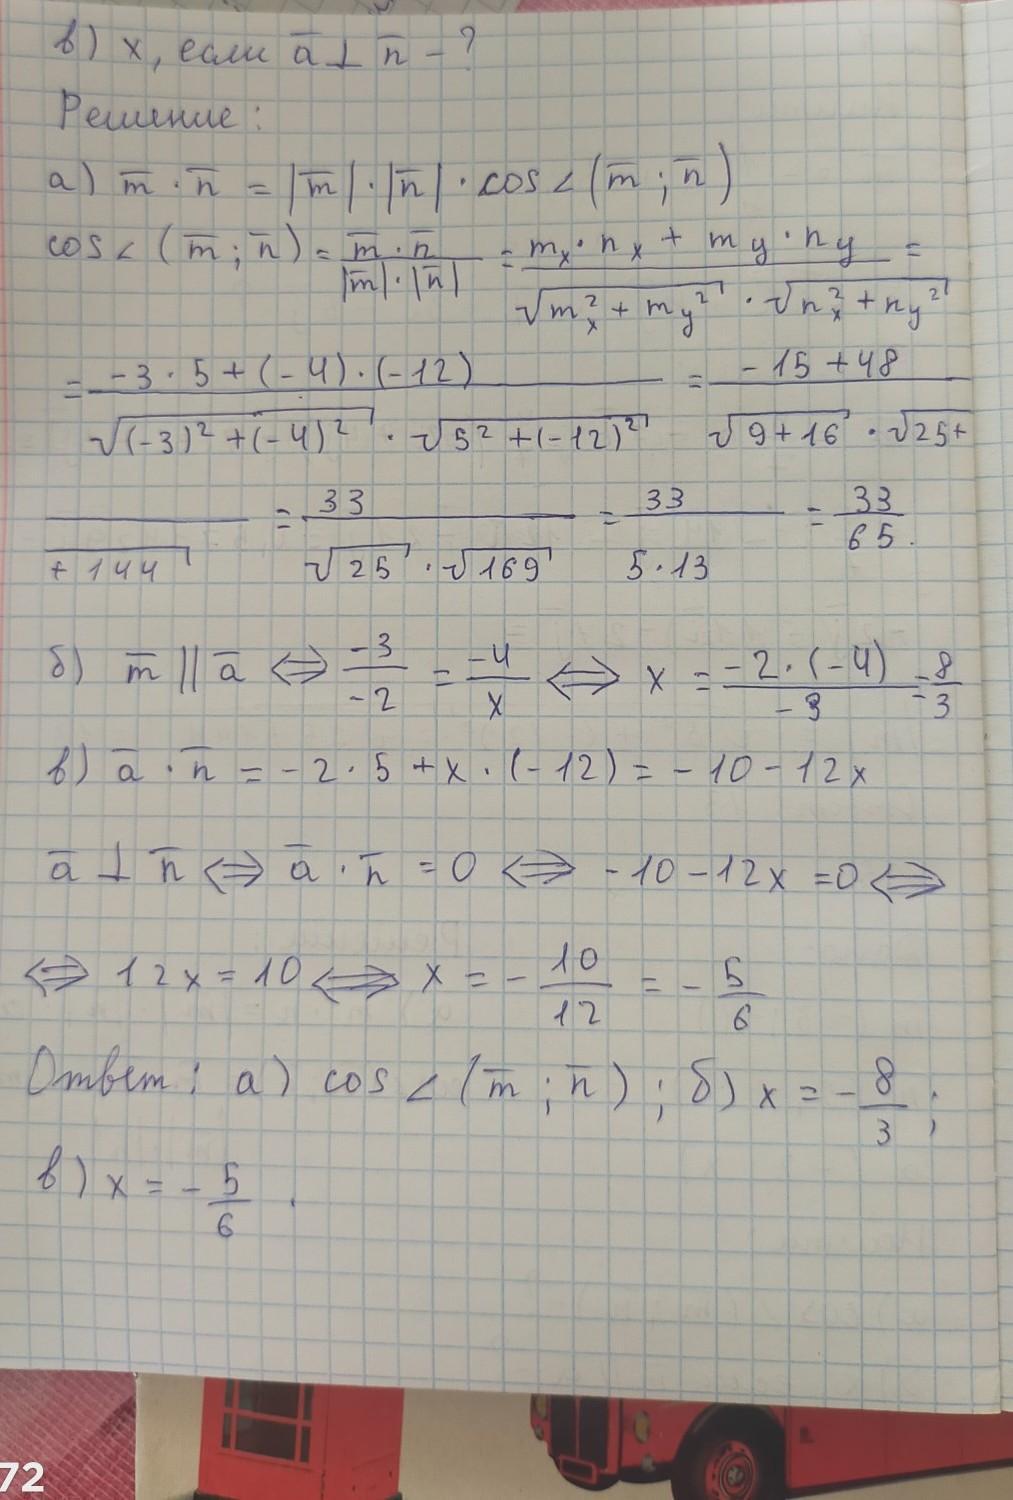 в) x, если a̅ ⊥ n̅ - ?
Решение:
а) m̅ · n̅ = |m̅| · |n̅| · cos ∠ (m̅ ; n̅)
cos ∠ (m̅ ; n̅) = (m̅ · n̅)/(|m̅| · |n̅|) = (mₓ · nₓ + m_y · n_y)/(√(mₓ² + m_y²) · √(nₓ² + n_y²)) =
= (-3 · 5 + (-4) · (-12))/(√((-3)² + (-4)²) · √(5² + (-12)²)) = (-15 + 48)/(√(9 + 16) · √(25 +
+ 144)) = 33/(√25 · √169) = 33/(5 · 13) = 33/65.
б) m̅ || a̅ ⇔ -3/-2 = -4/x ⇔ x = (-2 · (-4))/-3 = -8/3
в) a̅ · n̅ = -2 · 5 + x · (-12) = -10 - 12x
a̅ ⊥ n̅ ⇔ a̅ · n̅ = 0 ⇔ -10 - 12x = 0 ⇔
⇔ 12x = 10 ⇔ x = -10/12 = -5/6
Ответ: а) cos ∠ (m̅ ; n̅) ; б) x = -8/3 ;
в) x = -5/6 .
72